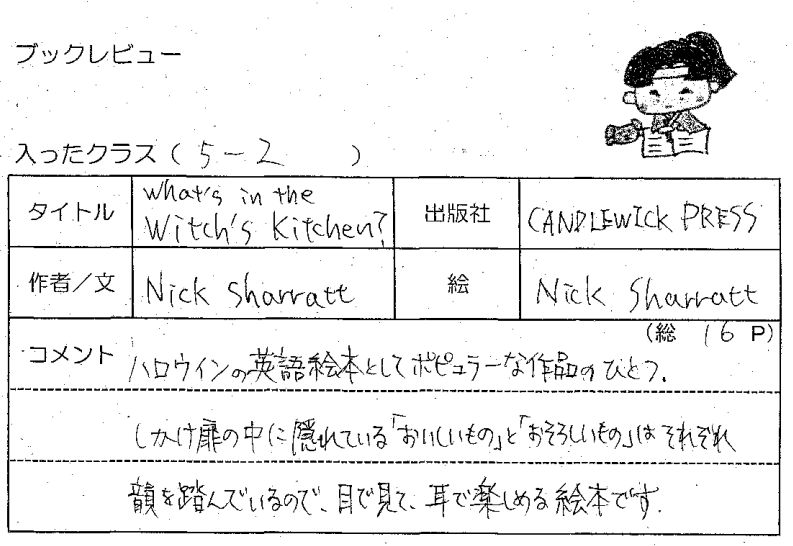 ブックレビュー
入ったクラス ( 5-2 )
タイトル What's in the Witch's Kitchen? 出版社 CANDLEWICK PRESS
作者/文 Nick Sharratt 絵 Nick Sharratt
(総 16 P)
コメント ハロウインの英語絵本としてポピュラーな作品のひとつ。
しかけ扉の中に隠れている「おいしいもの」と「おそろしいもの」はそれぞれ
韻を踏んでいるので、目で見て、耳で楽しめる絵本です。